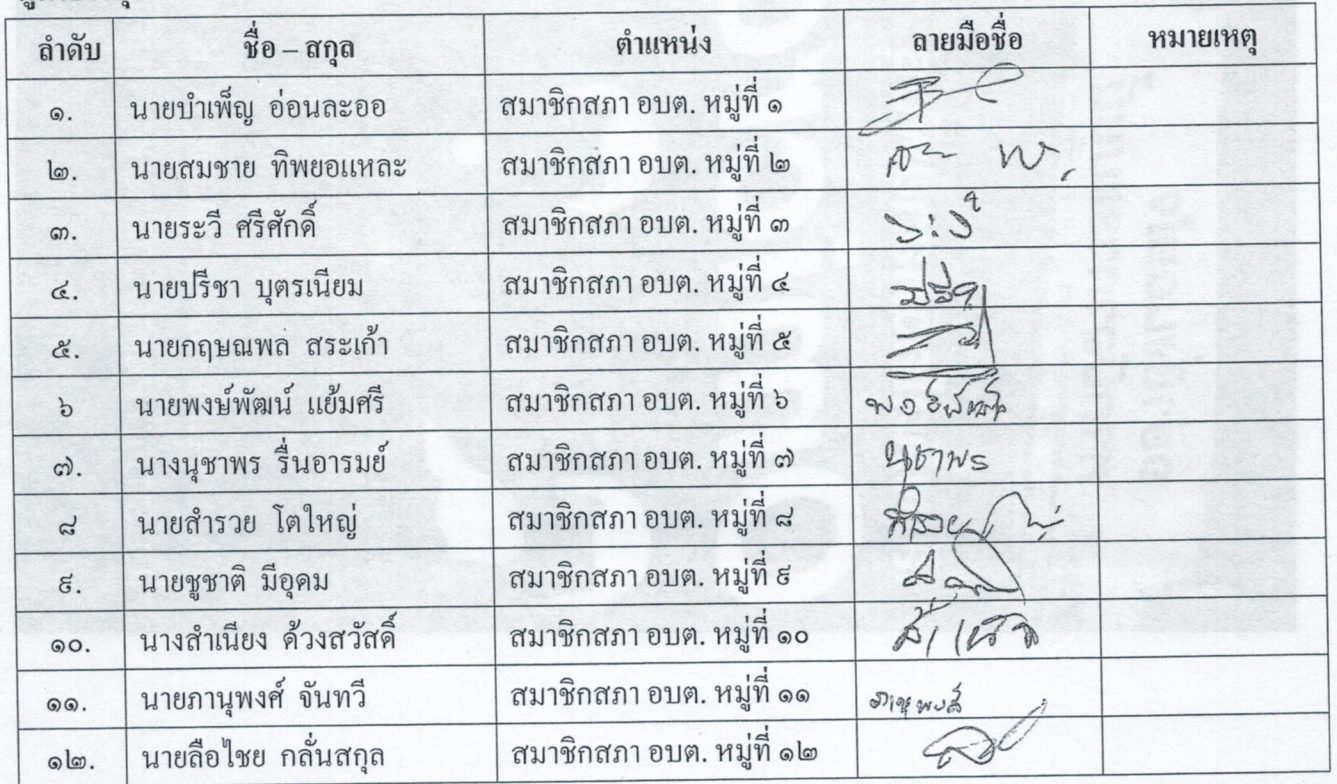 ลำดับ ชื่อ – สกุล ตำแหน่ง ลายมือชื่อ หมายเหตุ
๑. นายบำเพ็ญ อ่อนละออ สมาชิกสภา อบต. หมู่ที่ ๑
๒. นายสมชาย ทิพยอแหละ สมาชิกสภา อบต. หมู่ที่ ๒
๓. นายระวี ศรีศักดิ์ สมาชิกสภา อบต. หมู่ที่ ๓ ระวี
๔. นายปรีชา บุตรเนียม สมาชิกสภา อบต. หมู่ที่ ๔ ปรีชา
๕. นายกฤษณพล สระเก้า สมาชิกสภา อบต. หมู่ที่ ๕
๖ นายพงษ์พัฒน์ แย้มศรี สมาชิกสภา อบต. หมู่ที่ ๖ พงษ์พัฒน์
๗. นางนุชาพร รื่นอารมย์ สมาชิกสภา อบต. หมู่ที่ ๗ นุชาพร
๘ นายสำรวย โตใหญ่ สมาชิกสภา อบต. หมู่ที่ ๘
๙. นายชูชาติ มีอุดม สมาชิกสภา อบต. หมู่ที่ ๙
๑๐. นางสำเนียง ด้วงสวัสดิ์ สมาชิกสภา อบต. หมู่ที่ ๑๐
๑๑. นายภานุพงศ์ จันทวี สมาชิกสภา อบต. หมู่ที่ ๑๑ ภานุพงศ์
๑๒. นายลือไชย กลั่นสกุล สมาชิกสภา อบต. หมู่ที่ ๑๒